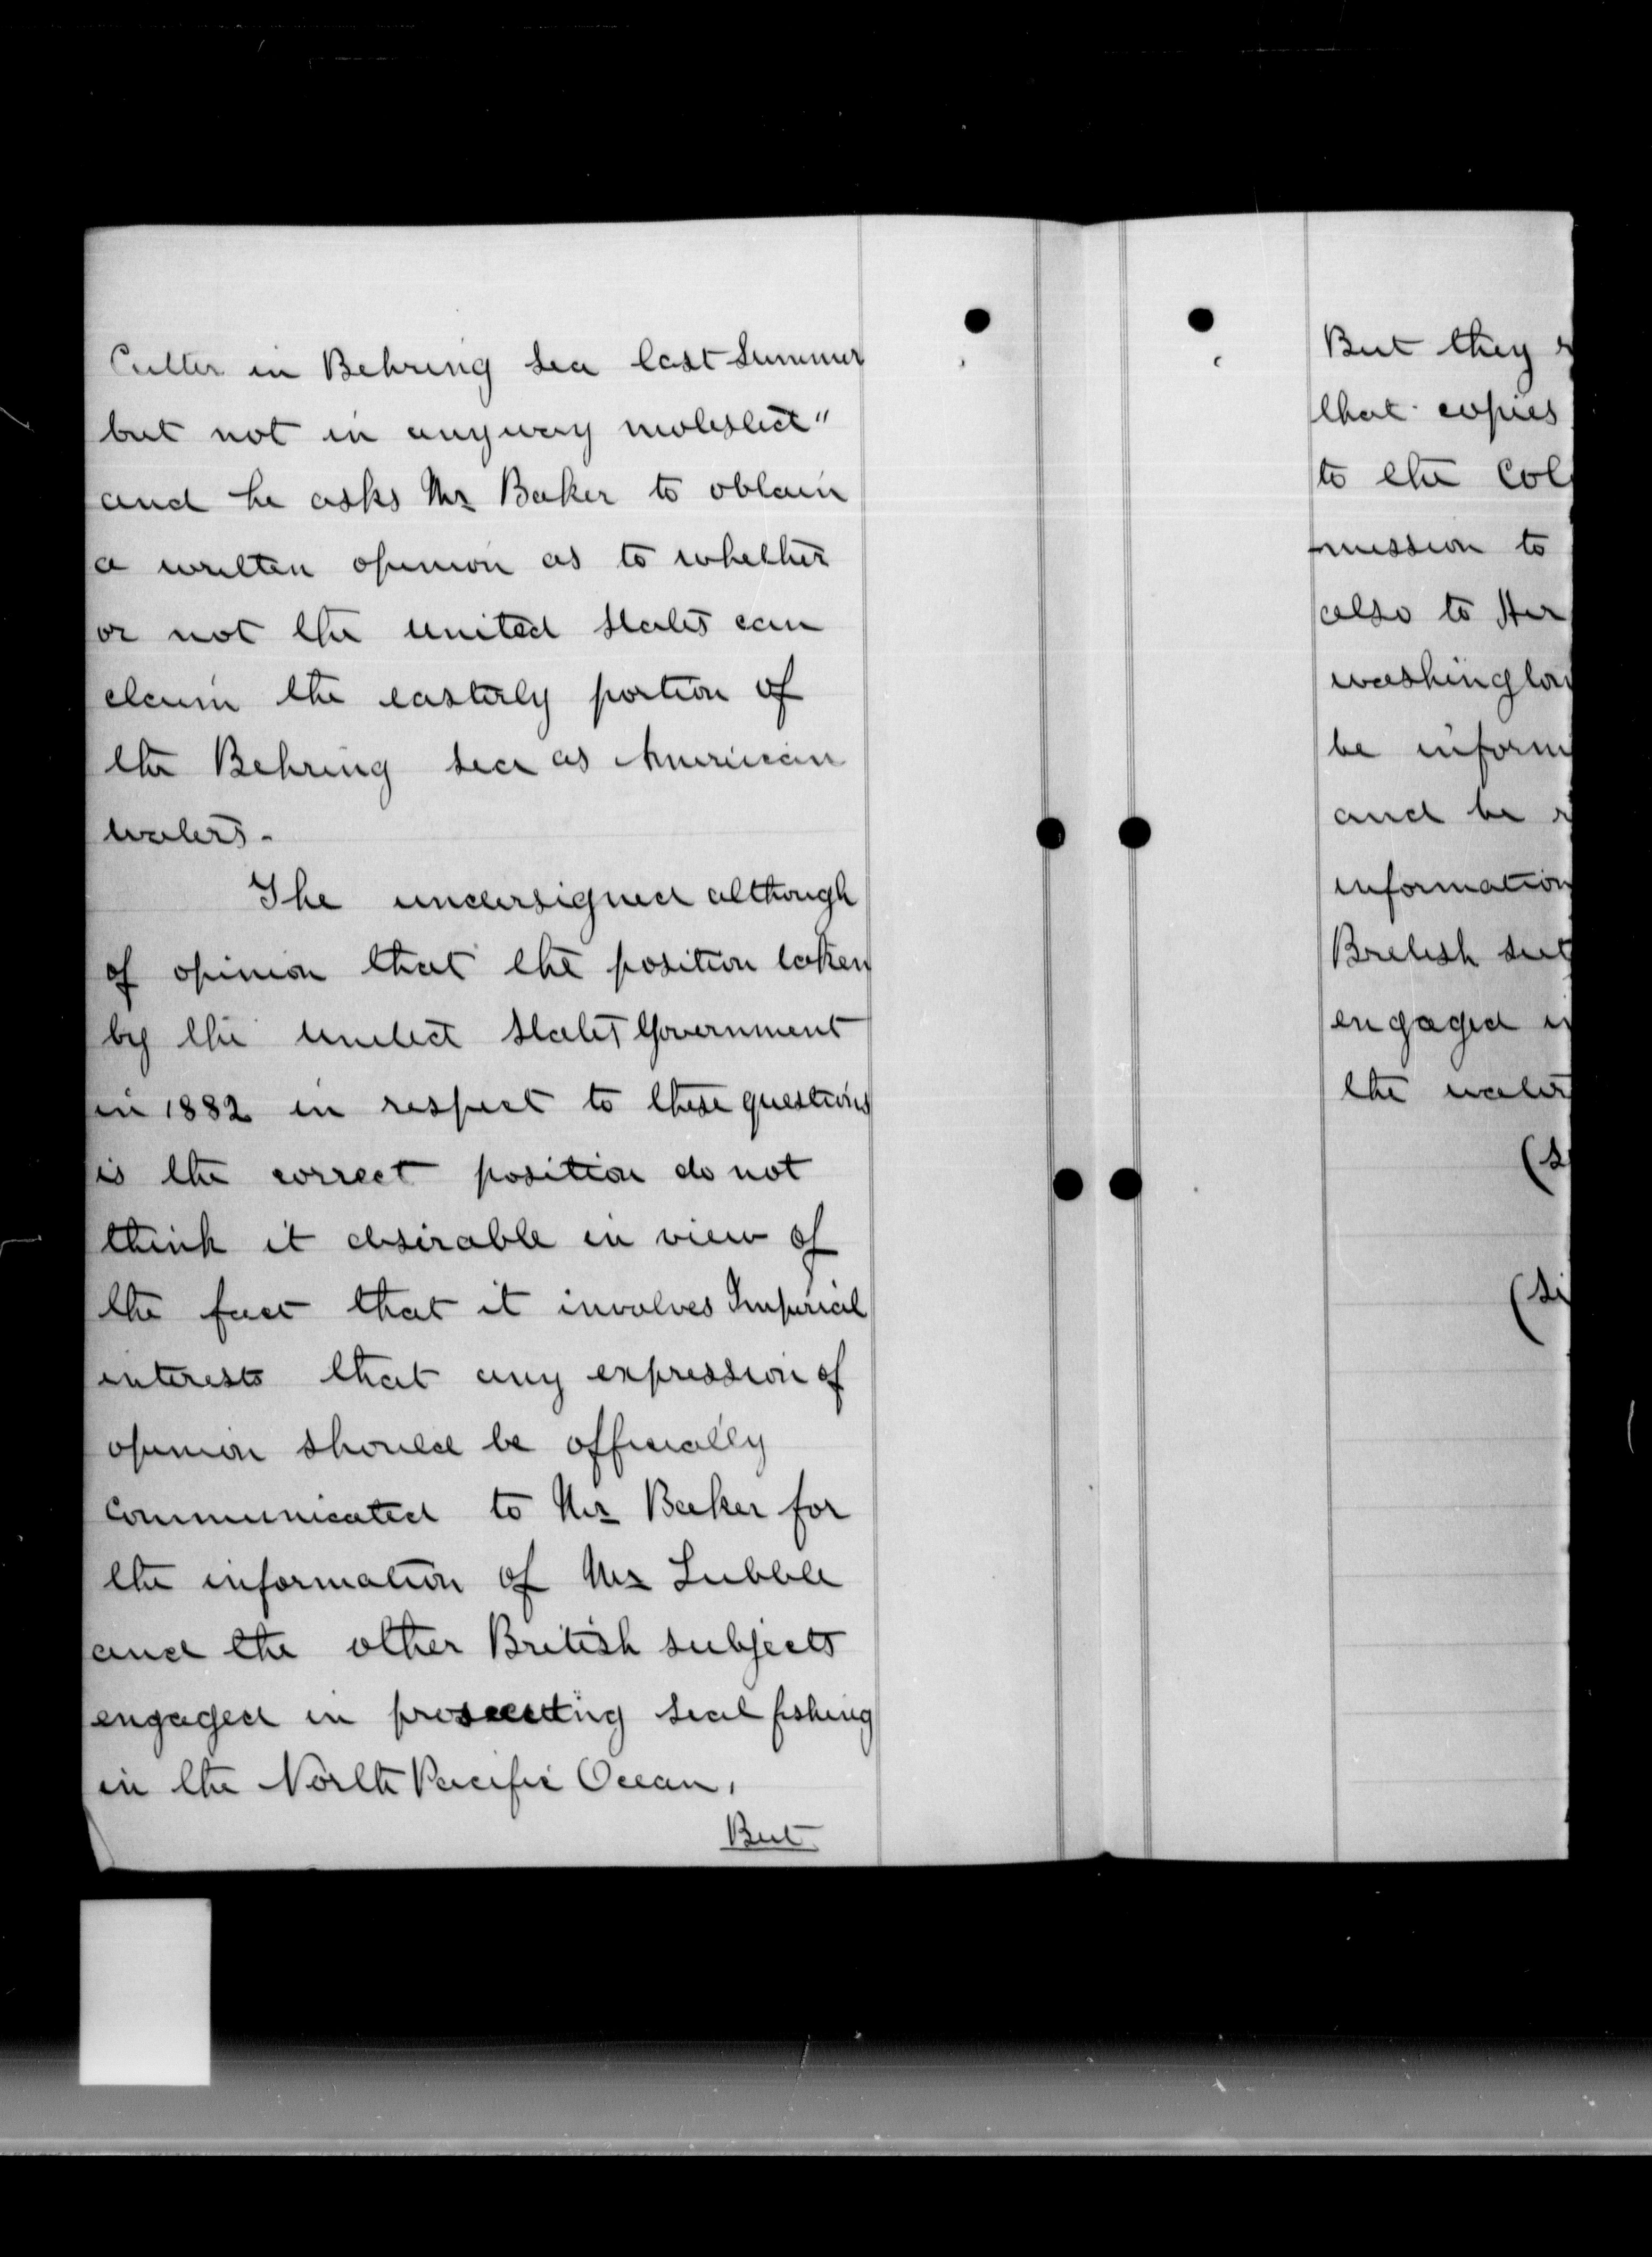 Cutter in Behring Sea last Summer
but not in anyway molested"
and he asks Mr Baker to obtain
a written opinion as to whether
or not the United States can
claim the easterly portion of
the Behring Sea as American
waters.
The undersigned although
of opinion that the position taken
by the United States Government
in 1882 in respect to these questions
is the correct position do not
think it desirable in view of
the fact that it involves Imperial
interests that any expression of
opinion should be officially
communicated to Mr Baker for
the information of Mr Lubbe
and the other British subjects
engaged in prosecuting seal fishing
in the North Pacific Ocean.
But
But they
that copies
to the Col
-mission to
also to Her
Washington
be inform
and be
information
British sub
engaged i
the water
(S
(Si